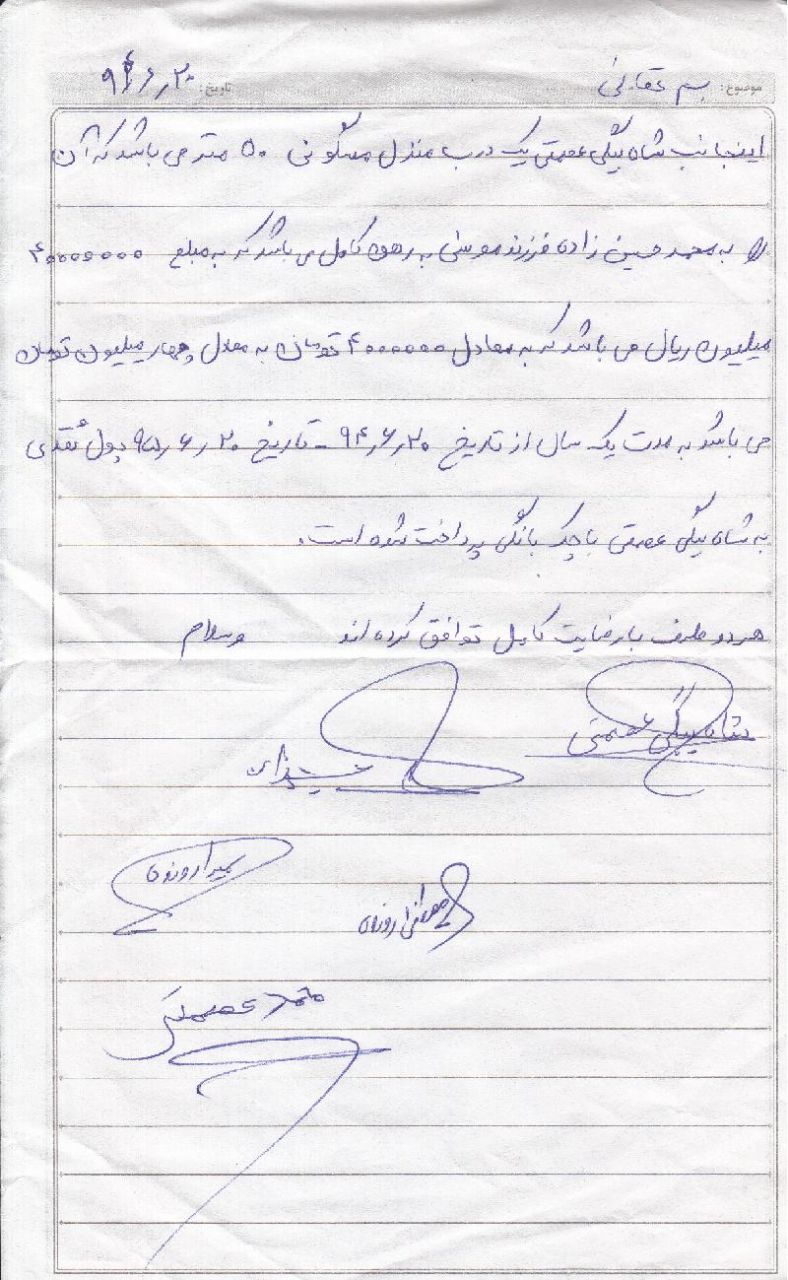 موضوع: بسم تعالی تاریخ: ۹۴٫۶٫۲۰
اینجانب شاه بیگی عصمتی یک درب منزل مسکونی ۵۰ متر می باشد که آن
را به محمد حسین زاده فرزند موسی به رهن کامل می باشد که به مبلغ ۴۰۰۰۰۰۰۰
میلیون ریال می باشد که به معادل ۴۰۰۰۰۰۰ تومان به معادل چهار میلیون تومان
می باشد به مدت یک سال از تاریخ ۹۴٫۶٫۲۰ - تاریخ ۹۵٫۶٫۲۰ پول نقدی
به شاه بیگی عصمتی با چک بانکی پرداخت شده است.
هر دو طرف با رضایت کامل توافق کرده اند وسلام
شاه بیگی عصمتی
حسین زاده
محمد عصمتی